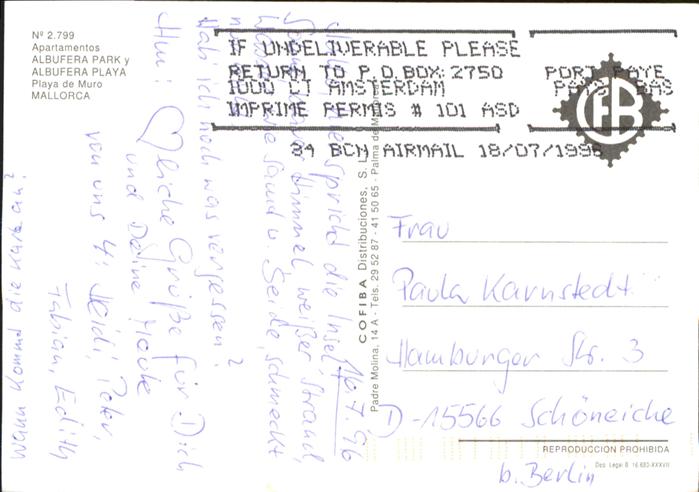 Nº 2.799
Apartamentos
ALBUFERA PARK y
ALBUFERA PLAYA
Playa de Muro
MALLORCA
IF UNDELIVERABLE PLEASE
RETURN TO P.O.BOX: 2750
1000 CT AMSTERDAM
IMPRIME PERMIS # 101 ASD
PORT PAYE
PAYS BAS
34 BCN AIRMAIL 18/07/1996
CFB
16.7.96
spricht die Insel
Himmel, weißer Strand,
Sand u. Seide, schmeckt
Hab ich noch was vergessen?
Hm!
liche Grüße für Dich
und Deine Heute
von uns 4: Heidi, Peter,
Fabian, Edith
Wann kommt die Karte an?
COFIBA Distribuciones, S. L.
Padre Molina, 14 A - Tels. 29 52 87 - 41 50 65 - Palma de
Frau
Paula Karnstedt
Hamburger Str. 3
D-15566 Schöneiche
b. Berlin
REPRODUCCION PROHIBIDA
Dep. Legal B. 16.683-XXXVII